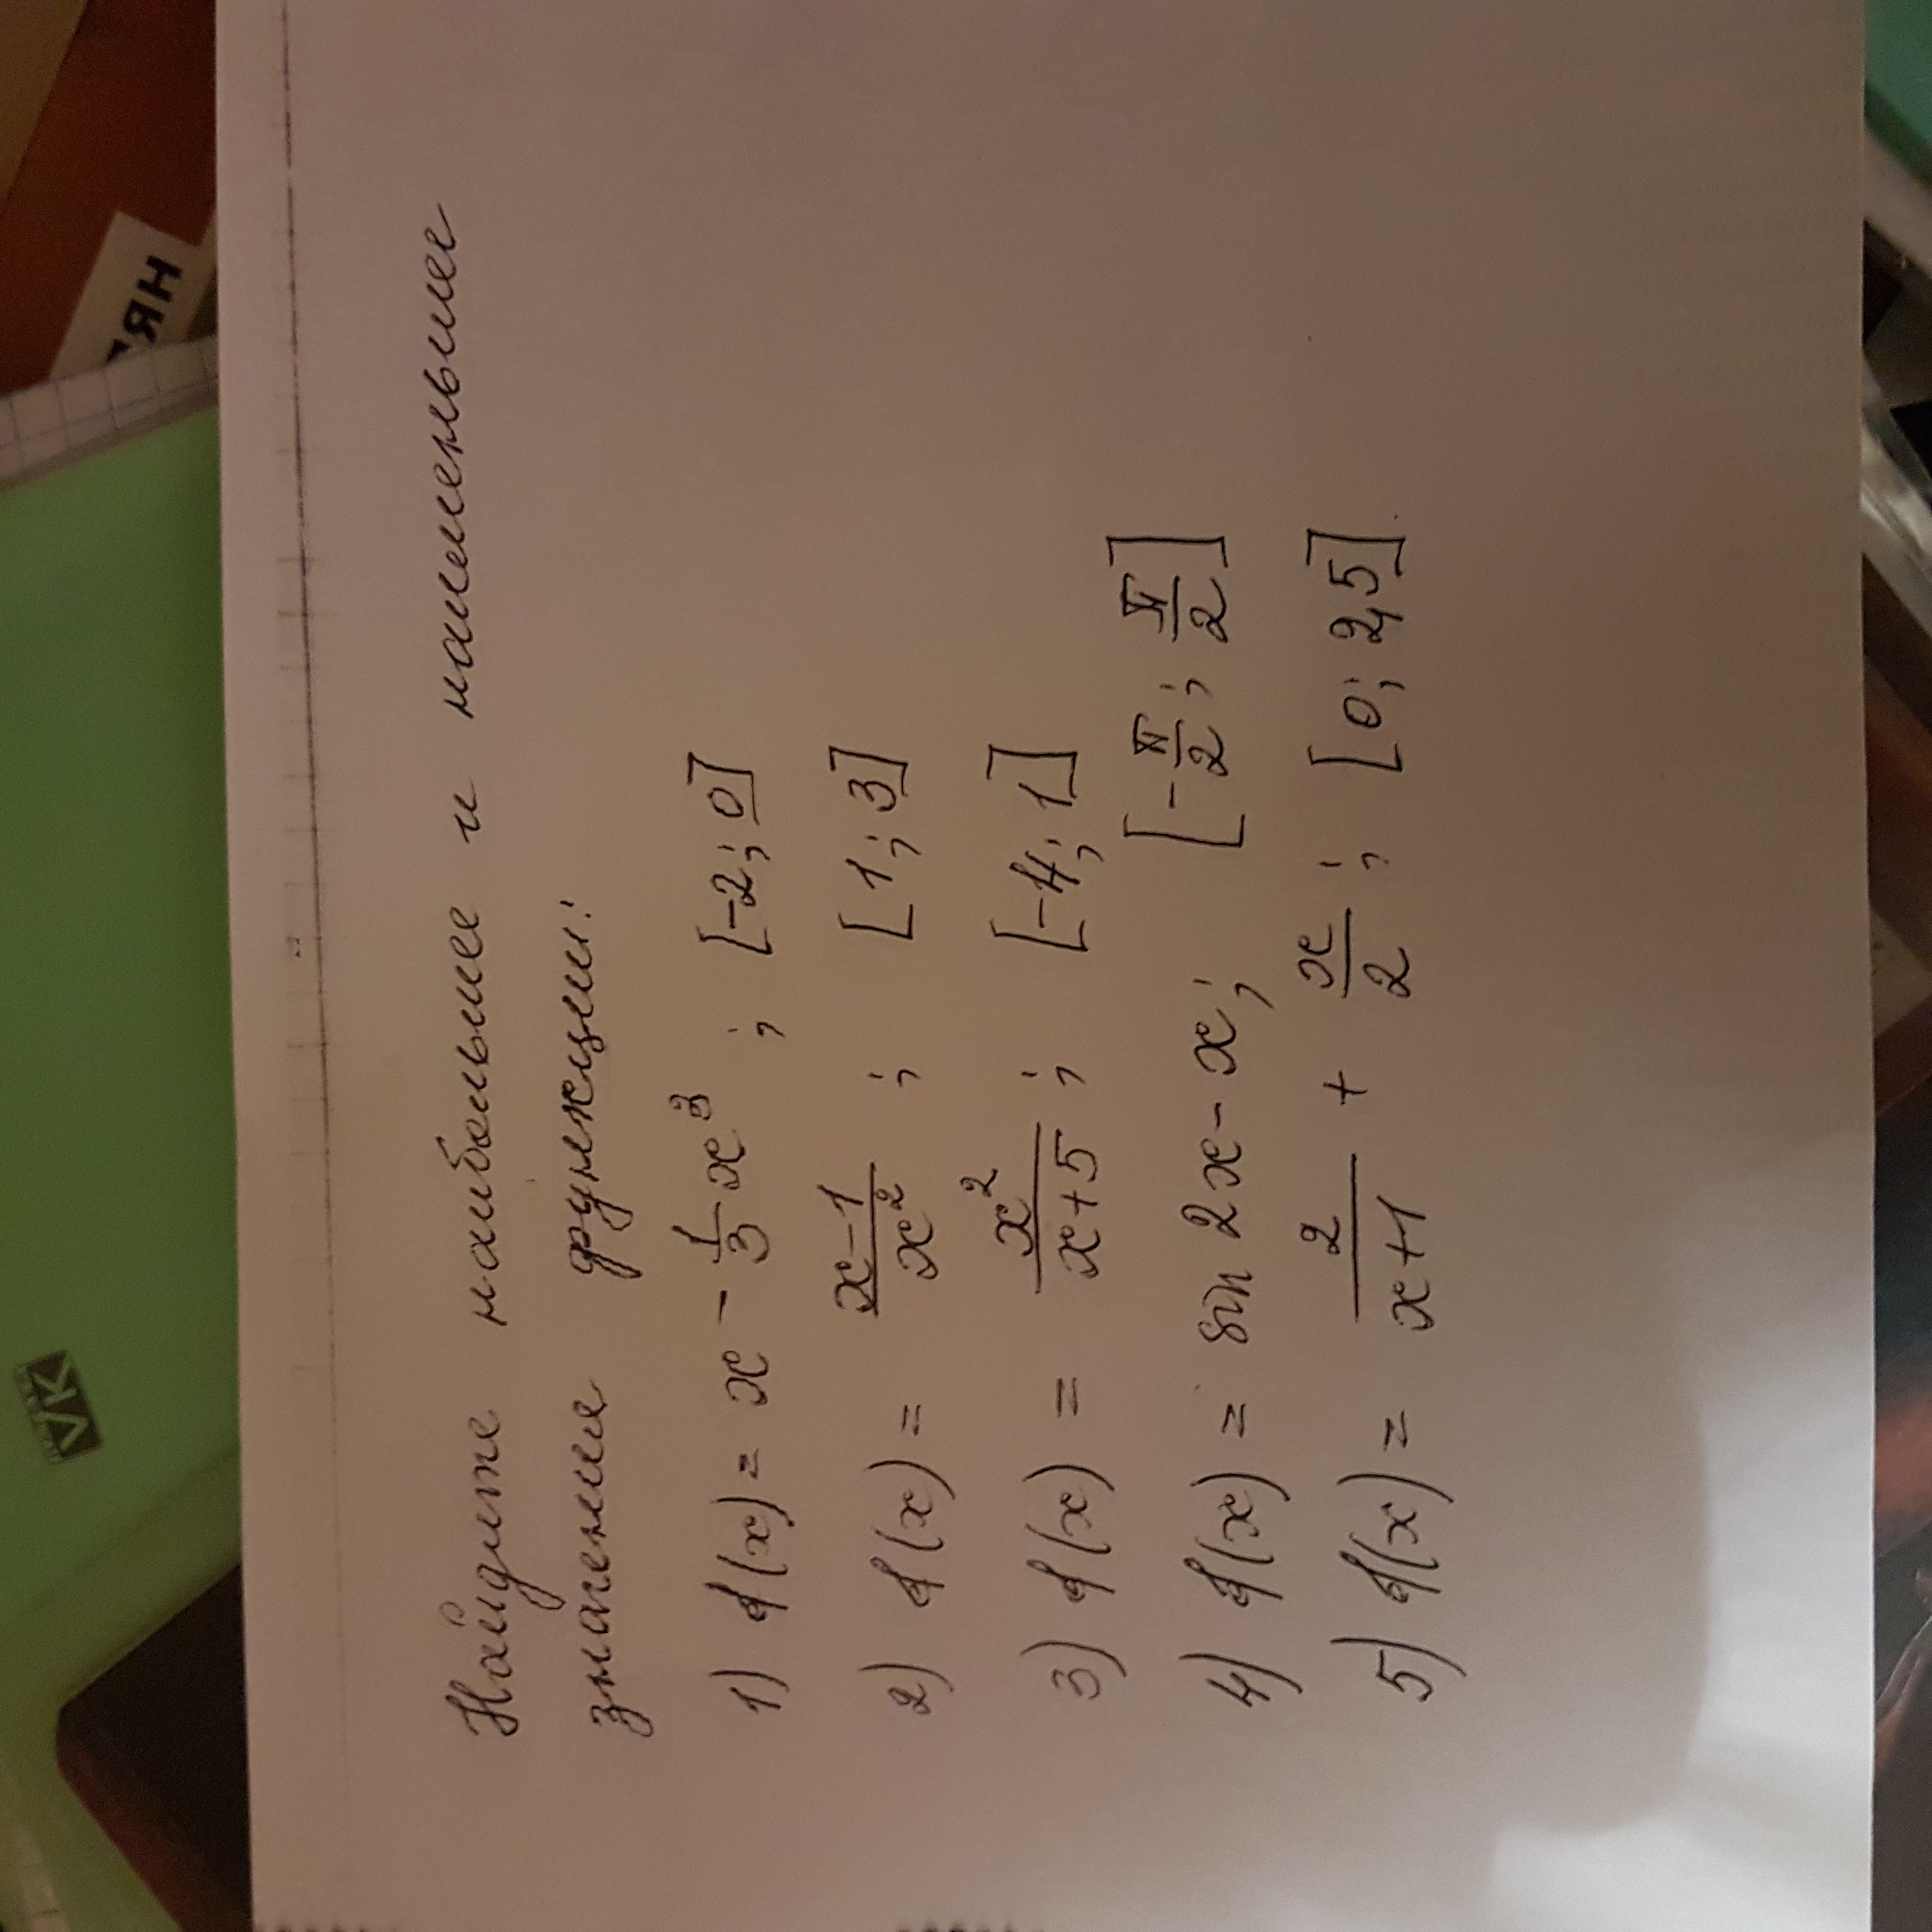 Найдите наибольшее и наименьшее
значение функции:
1) f(x) = x - 1/3 x³ ; [-2; 0]
2) f(x) = (x-1)/x² ; [1; 3]
3) f(x) = x²/(x+5) ; [-4; 1]
4) f(x) = sin 2x - x ; [-π/2 ; π/2]
5) f(x) = 2/(x+1) + x/2 ; [0; 2,5]
VK
ЯН